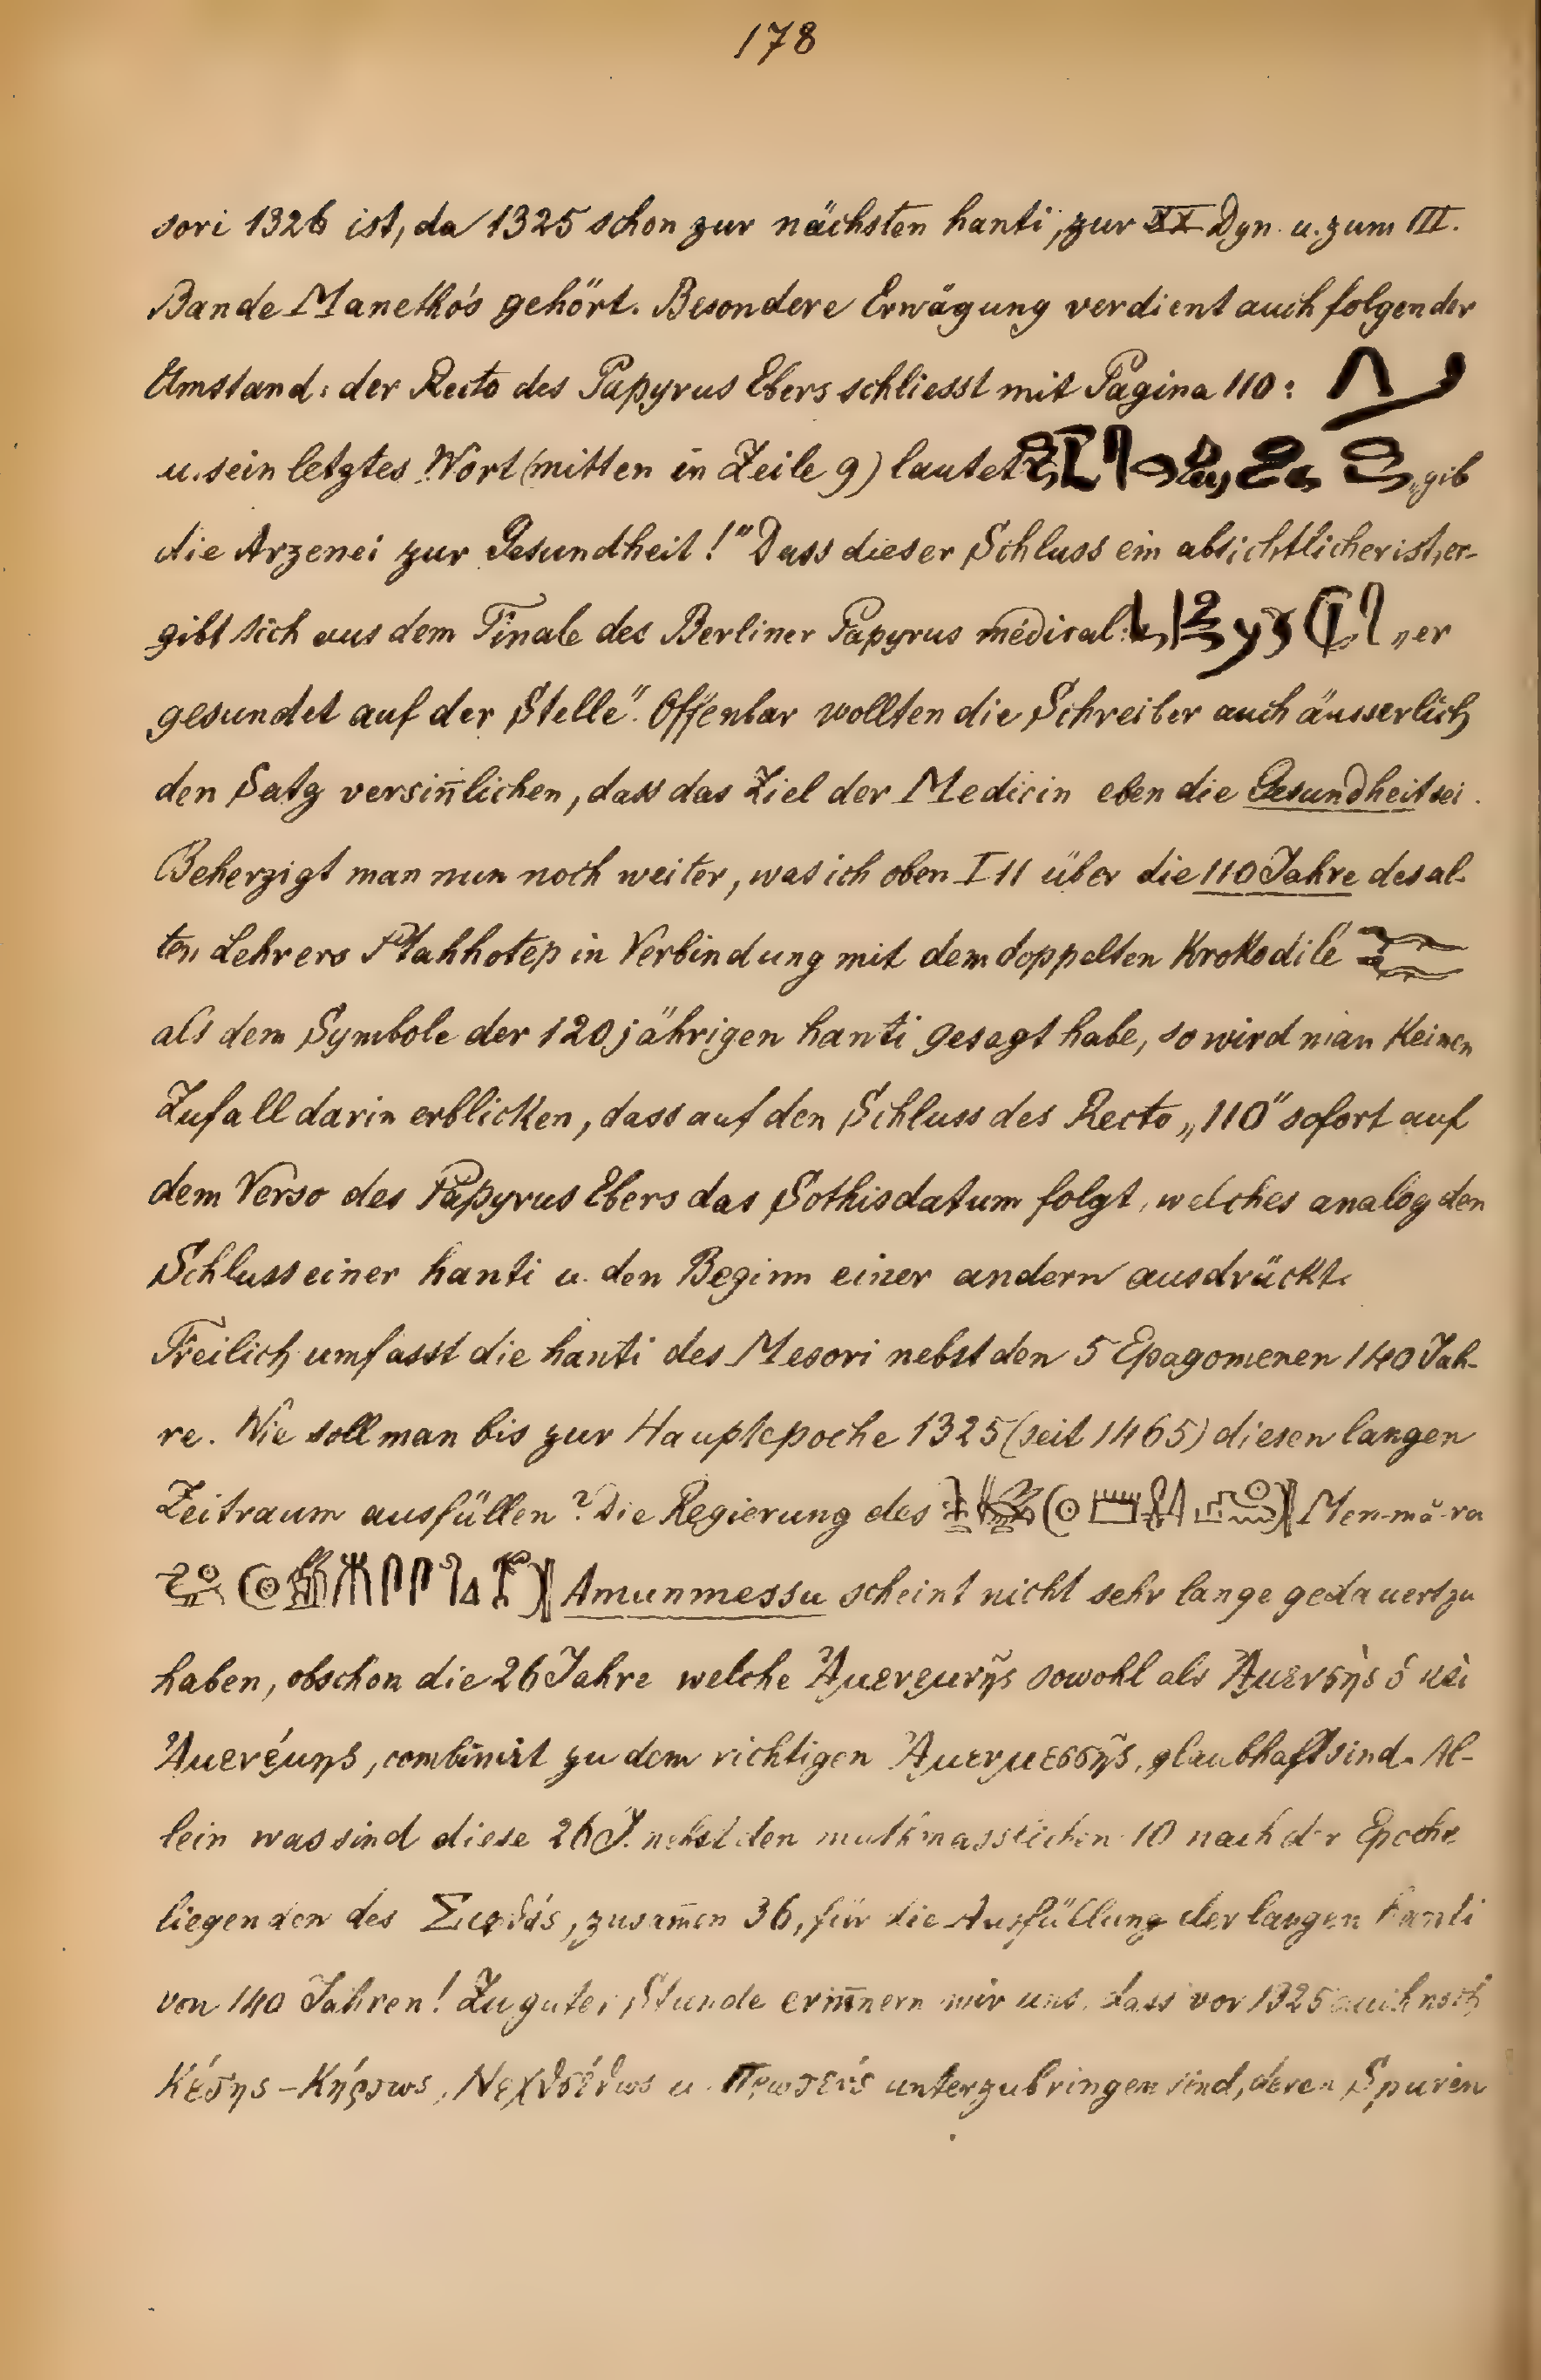 178
sori 1326 ist, da 1325 schon zur nächsten hanti, zur XX Dyn. u. zum III.
Bande Manetho's gehört. Besondere Erwägung verdient auch folgender
Umstand: der Recto des Papyrus Ebers schliesst mit Pagina 110:
u. sein letztes Wort (mitten in Zeile 9) lautet „gib
die Arzenei zur Gesundheit!" Dass dieser Schluss ein absichtlicher ist, er-
gibt sich aus dem Finale des Berliner Papyrus médical: „er
gesundet auf der Stelle". Offenbar wollten die Schreiber auch äusserlich
den Satz versin̄lichen, dass das Ziel der Medicin eben die Gesundheit sei.
Beherzigt man nun noch weiter, was ich oben I 11 über die 110 Jahre des al-
ten Lehrers Ptahhotep in Verbindung mit dem doppelten Krokodile
als dem Symbole der 120jährigen hanti gesagt habe, so wird man keinen
Zufall darin erblicken, dass auf den Schluss des Recto „110" sofort auf
dem Verso des Papyrus Ebers das Sothisdatum folgt, welches analog den
Schluss einer hanti u. den Beginn einer andern ausdrückt.
Freilich umfasst die hanti des Mesori nebst den 5 Epagomenen 140 Jah-
re. Wie soll man bis zur Hauptepoche 1325 (seit 1465) diesen langen
Zeitraum ausfüllen? Die Regierung des Men-mâ-ra
Amunmessu scheint nicht sehr lange gedauert zu
haben, obschon die 26 Jahre welche sowohl als
combinirt zu dem richtigen Ἀμερμεσσῆς, glaubhaft sind. Al-
lein was sind diese 26 J. nebst den muthmasslichen 10 nach der Epoche
liegenden des, zusam̄en 36, für die Ausfüllung der langen hanti
von 140 Jahren! Zu guter Stunde erin̄nern wir uns, dass vor 1325 auch noch
Κέρτως, u. unterzubringen sind, deren Spuren